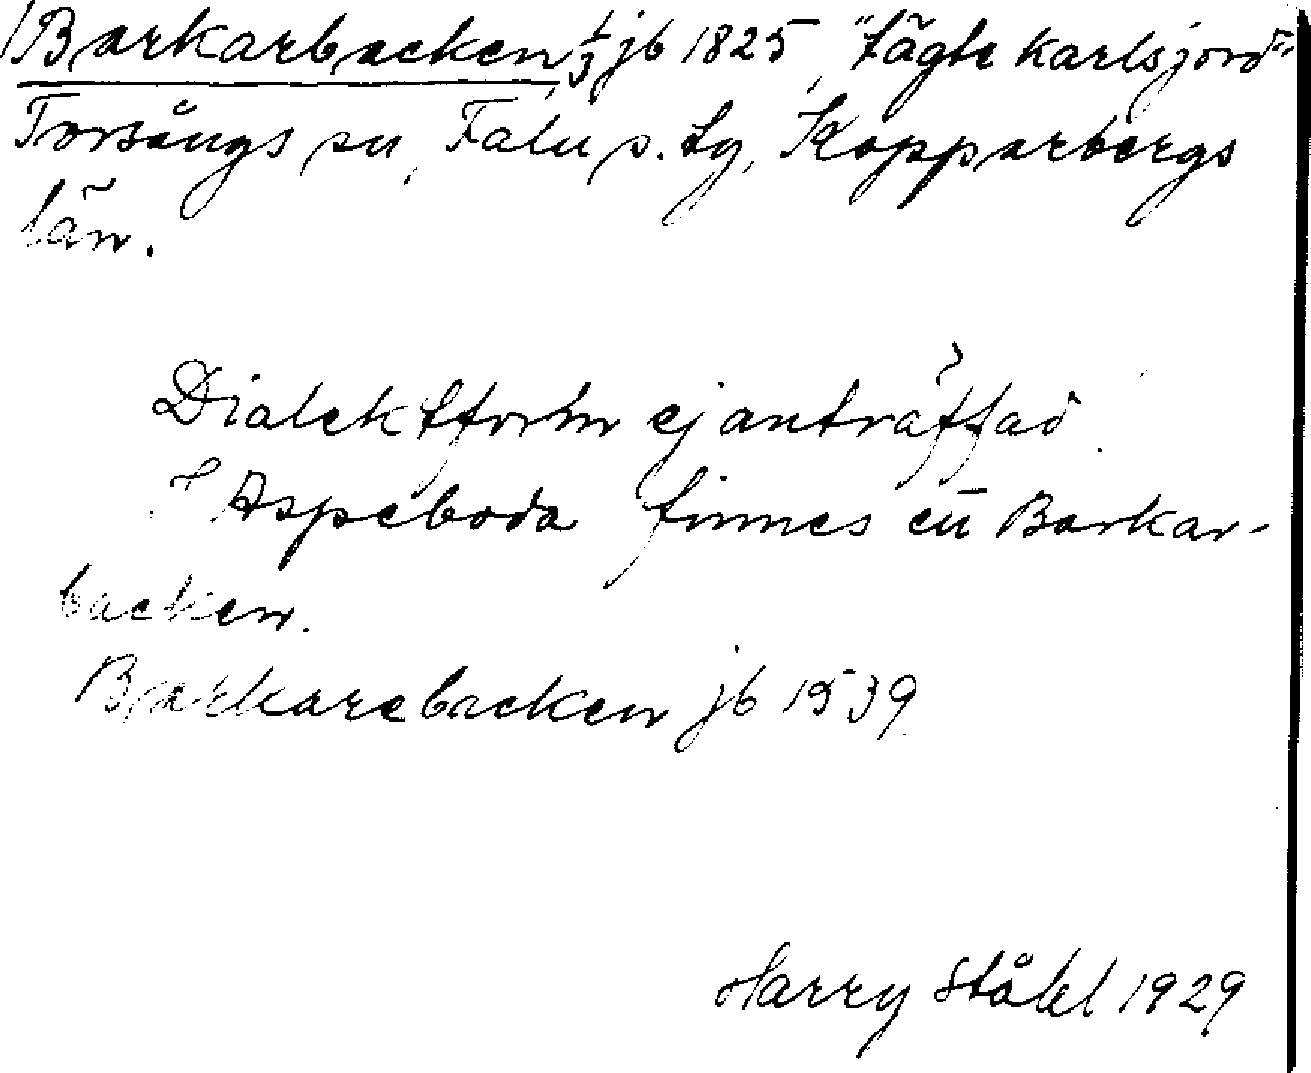 Barkarbacken, 1/3 jb 1825, "tägtekarlsjord"
Torsångs sn, Falu s. tg, Kopparbergs
län.
Dialektform ej anträffad.
I Aspeboda finnes ett Barkar-
backen.
Barkarebacken jb 1539
Harry Ståhl 1929